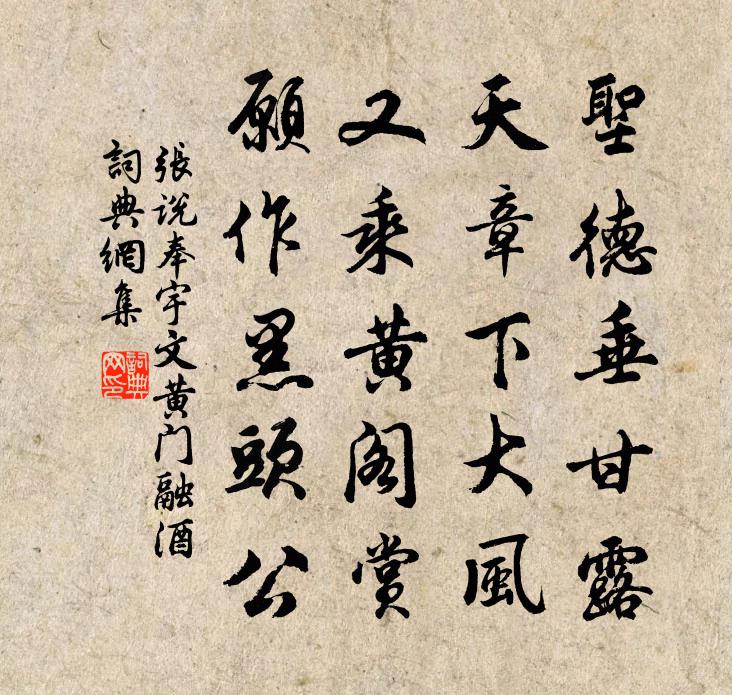 聖德垂甘露
天章下大風
又乘黃閣賞
願作黑頭公
張說奉宇文黃門融酒
詞典網集
詞典
网印